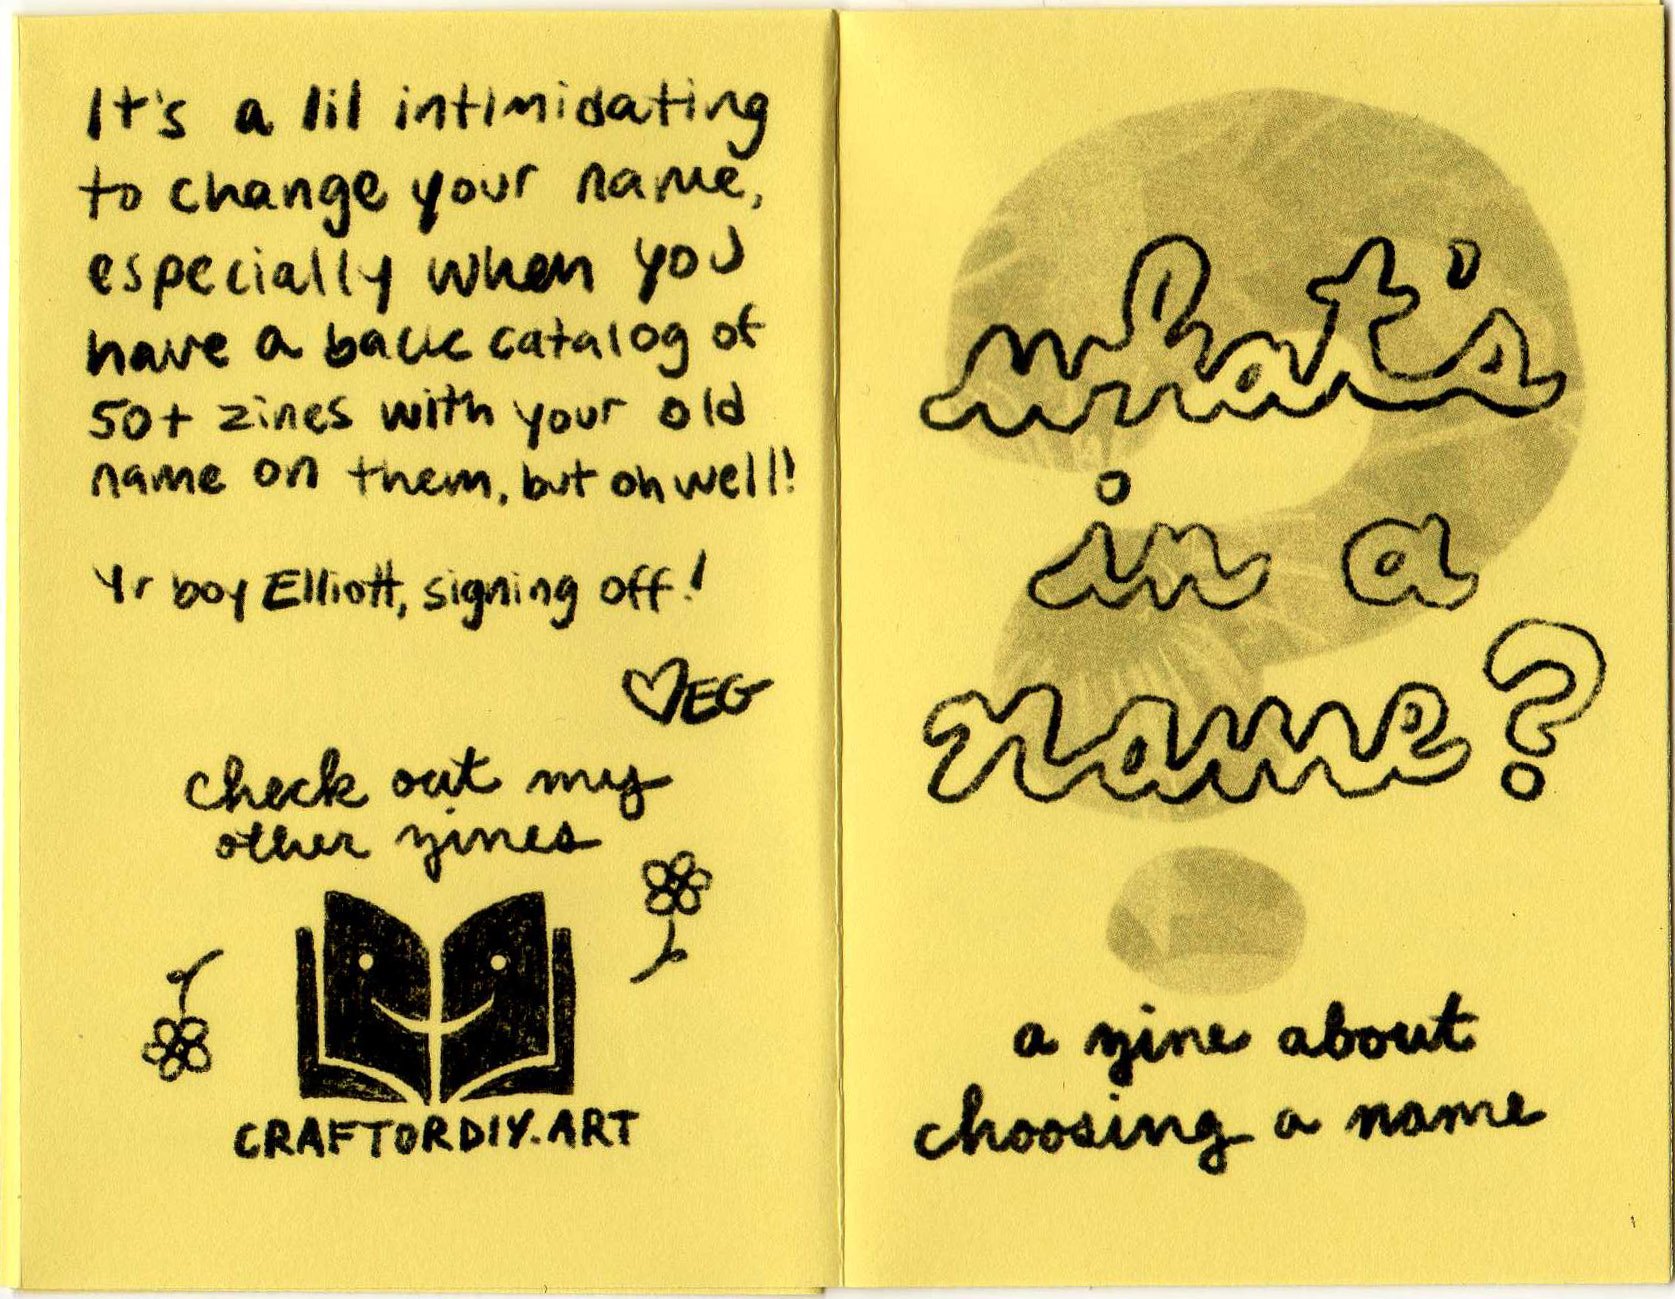 It's a lil intimidating
to change your name,
especially when you
have a back catalog of
50+ zines with your old
name on them, but oh well!
Yr boy Elliott, signing off!
♡EG
check out my
other zines
CRAFTORDIY.ART
what's
in a
name?
a zine about
choosing a name